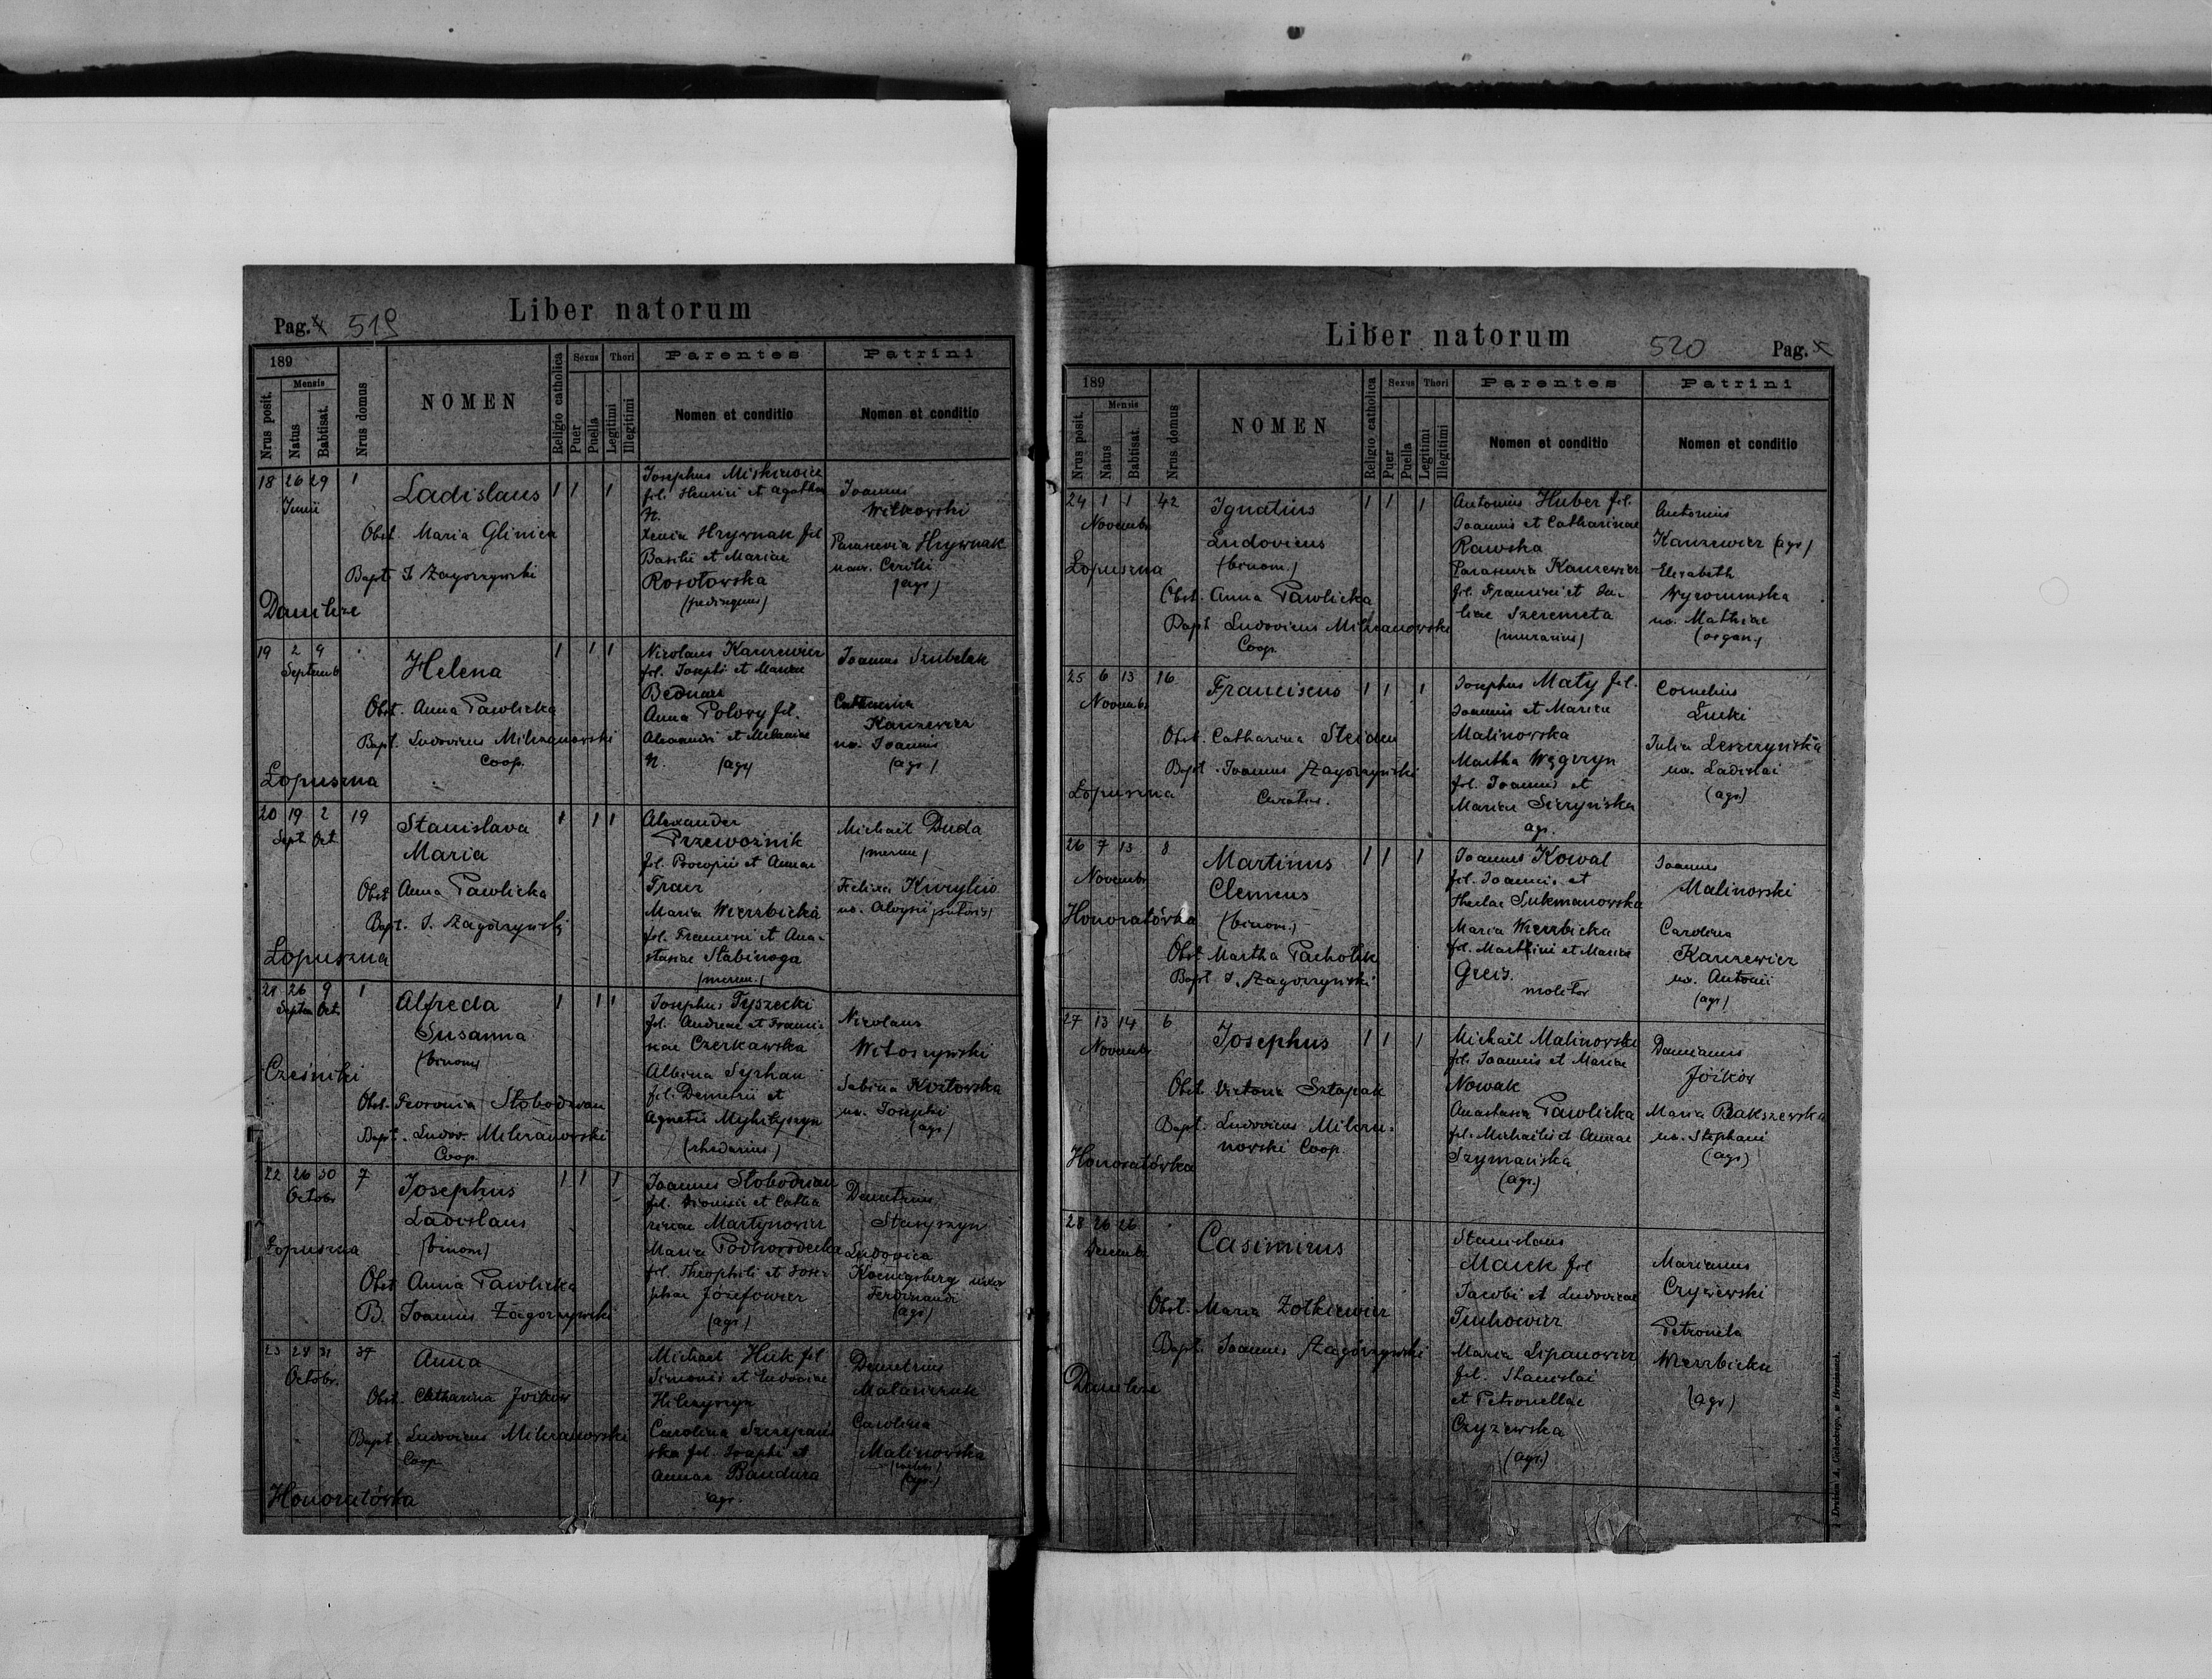 Liber natorum
Pag. 519
189
Nrus posit.
Mensis
Natus
Babtisat.
Nrus domus
NOMEN
Religio catholica
Sexus
Puer
Puella
Thori
Legitimi
Illegitimi
Parentes
Nomen et conditio
Patrini
Nomen et conditio
18 26 29 1
Junii
Ladislaus
1 1 1
Obst. Maria Glinica
Bapt. I. Zagorzynski
Josephus Miskiewicz
fil. Henrici et Agathae
N.
Xenia Hrywnak fil
Basilii et Mariae
Rosotowska
Joannes
Witkowski
Parascevia Hrywnak
(agr)
19 2 9
Septemb
Helena
1 1 1
Obst. Anna Pawlicka
Bapt. Ludovicus Milzanowski
Coop.
Lopuszna
Nicolaus Kanzewicz
fil. Josephi et Mariae
Bednarz
Anna Polovy fil.
Alexandri et Melaniae
N. (agr)
Joannes Szubelak
Catharina
Kanzewicz
ux. Joannis
(agr)
20 19 2 19
Sept Oct
Stanislava
Maria
1 1 1
Obst Anna Pawlicka
Bapt. I. Zagórzynski
Lopuszna
Alexander
Przewoźnik
fil. Procopii et Annae
Maria Wierzbicka
fil. Francisci et Ana-
stasiae Stabinoga
(mercen.)
Michaël Duda
ux. Aloysii
21 26 9 1
Septem Oct.
Alfreda
Susanna
(binom)
1 1 1
Cześniki
Obst. Slobodzian
Bapt. Ludov. Milzanowski
Coop.
Josephus Tyszecki
fil. Andreae et Franci-
scae Czerkawska
Albina Syrhan
fil. Demetrii et
Nicolaus
Witoszynski
Sabina Kozlowska
ux. Josephi
(agr)
22 26 30 7
Octobr
Josephus
Ladislaus
(binom)
1 1 1
Lopuszna
Obst Anna Pawlicka
B. Joannes Zagorzynski
Joannes Slobodzian
fil. Dionisii et Catha
rinae Martynowicz
Maria Podhorodecka
fil. Theophili et Jose-
phae Józefowicz
(agr)
Demetrius
Staryszyn
Ludovica
Koenigsberg uxor
Ferdinandi
(agr)
23 28 31 37
Octobr.
Anna
Obst. Catharina Joików
Bapt. Ludovicus Milzanowski
Coop
Honoratówka
Michael Huk fil
Simonis et Ludovicae
Carolina Szczepań
ska fil. Josephi et
Annae Bandura
agr.
Demetrius
Carolina
Malinowska
(agr.)
Liber natorum
520 Pag.
189
Nrus posit.
Mensis
Natus
Babtisat.
Nrus domus
NOMEN
Religio catholica
Sexus
Puer
Puella
Thori
Legitimi
Illegitimi
Parentes
Nomen et conditio
Patrini
Nomen et conditio
24 1 1 42
Novemb
Ignatius
Ludovicus
(binom.)
1 1 1
Lopuszna
Obst. Anna Pawlicka
Bapt Ludovicus Milzanowski
Coop.
Antonius Huber fil.
Joannis et Catharinae
Rawska
Parascevia Kanzewicz
fil. Francisci et Ju-
liae Szeremeta
(murarius)
Antonius
Kanzewicz (agr)
Elisabeth
ux. Mathiae
(organ.)
25 6 13 16
Novemb.
Franciscus
1 1 1
Obst. Catharina Steiden
Bapt. Joannes Zagorzynski
Curatus.
Lopuszna
Josephus Maty fil.
Joannis et Mariae
Malinowska
Martha Węgrzyn
fil. Joannis et
Mariae
agr.
Cornelius
Lucki
Julia Leszczyńska
ux. Ladislai
(agr)
26 7 13 8
Novembr
Martinus
Clemens
(binom.)
1 1 1
Honoratówka
Obst Martha Pacholik
Bapt I. Zagorzynski
Joannes Kowal
fil. Joannis et
Theclae Lukmanowska
Maria Wierzbicka
fil. Martini et Mariae
Greis.
molitor
Joannes
Malinovski
Carolina
Kanzewicz
ux. Antonii
(agr)
27 13 14 6
Novemb
Josephus
1 1 1
Obst. Victoria Szlapak
Bapt. Ludovicus Milza-
nowski Coop.
Honoratówka
Michaël Malinowski
fil. Joannis et Mariae
Nowak
Anastasia Pawlicka
fil. Michaëlis et Annae
Szymańska
(agr.)
Damianus
Joików
Maria Bakszewska
ux. Stephani
(agr)
28 26 26
Decemb
Casimirus
Obst. Maria Zolkiewicz
Bapt. Joannes Zagórzynski
Stanislaus
Macek fil
Jacobi et Ludovicae
Tuchowicz
Maria Lipanowicz
fil. Stanislai
et Petronellae
Czyzewska
(agr.)
Marianus
Czyżewski
Petronela
Wierzbicka
(agr)